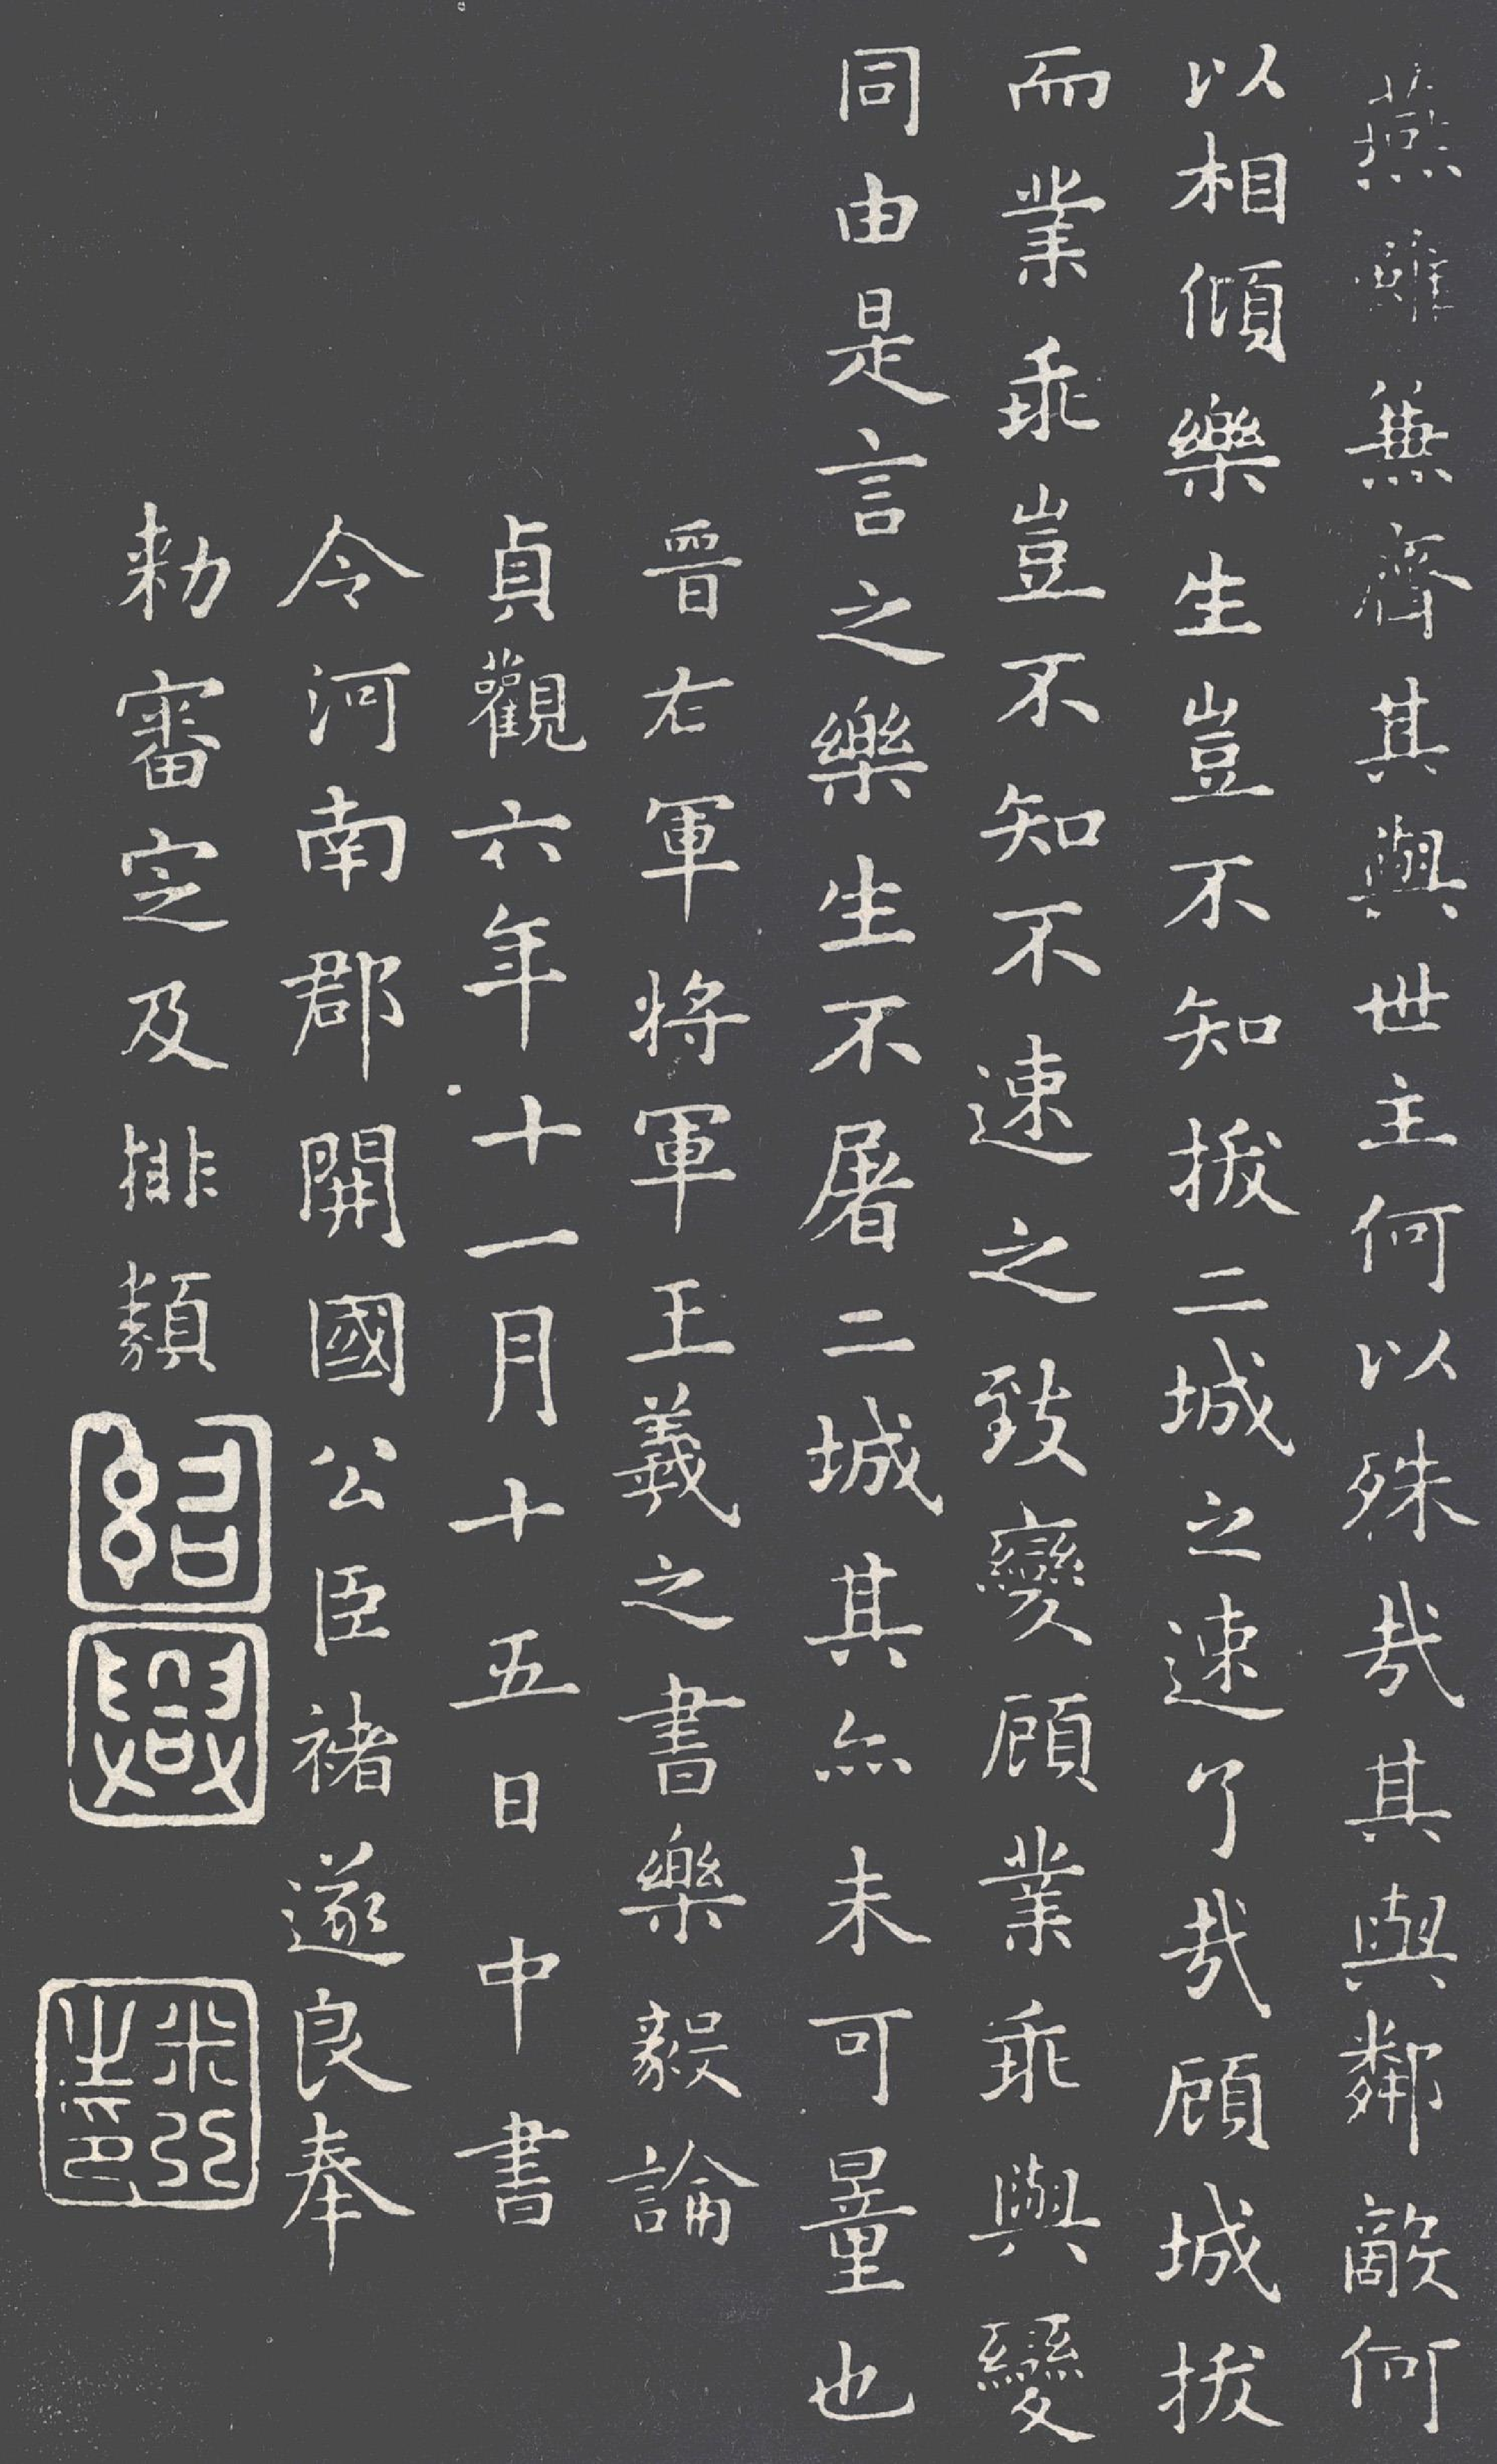 燕雖兼齊其與世主何以殊哉其與鄰敵何
以相傾樂生豈不知拔二城之速了哉顧城拔
而業乖豈不知不速之致變顧業乖與變
同由是言之樂生不屠二城其亦未可量也
晉右軍將軍王羲之書樂毅論
貞觀六年十一月十五日中書
令河南郡開國公臣褚遂良奉
勑審定及排類
紹興
米芾之印